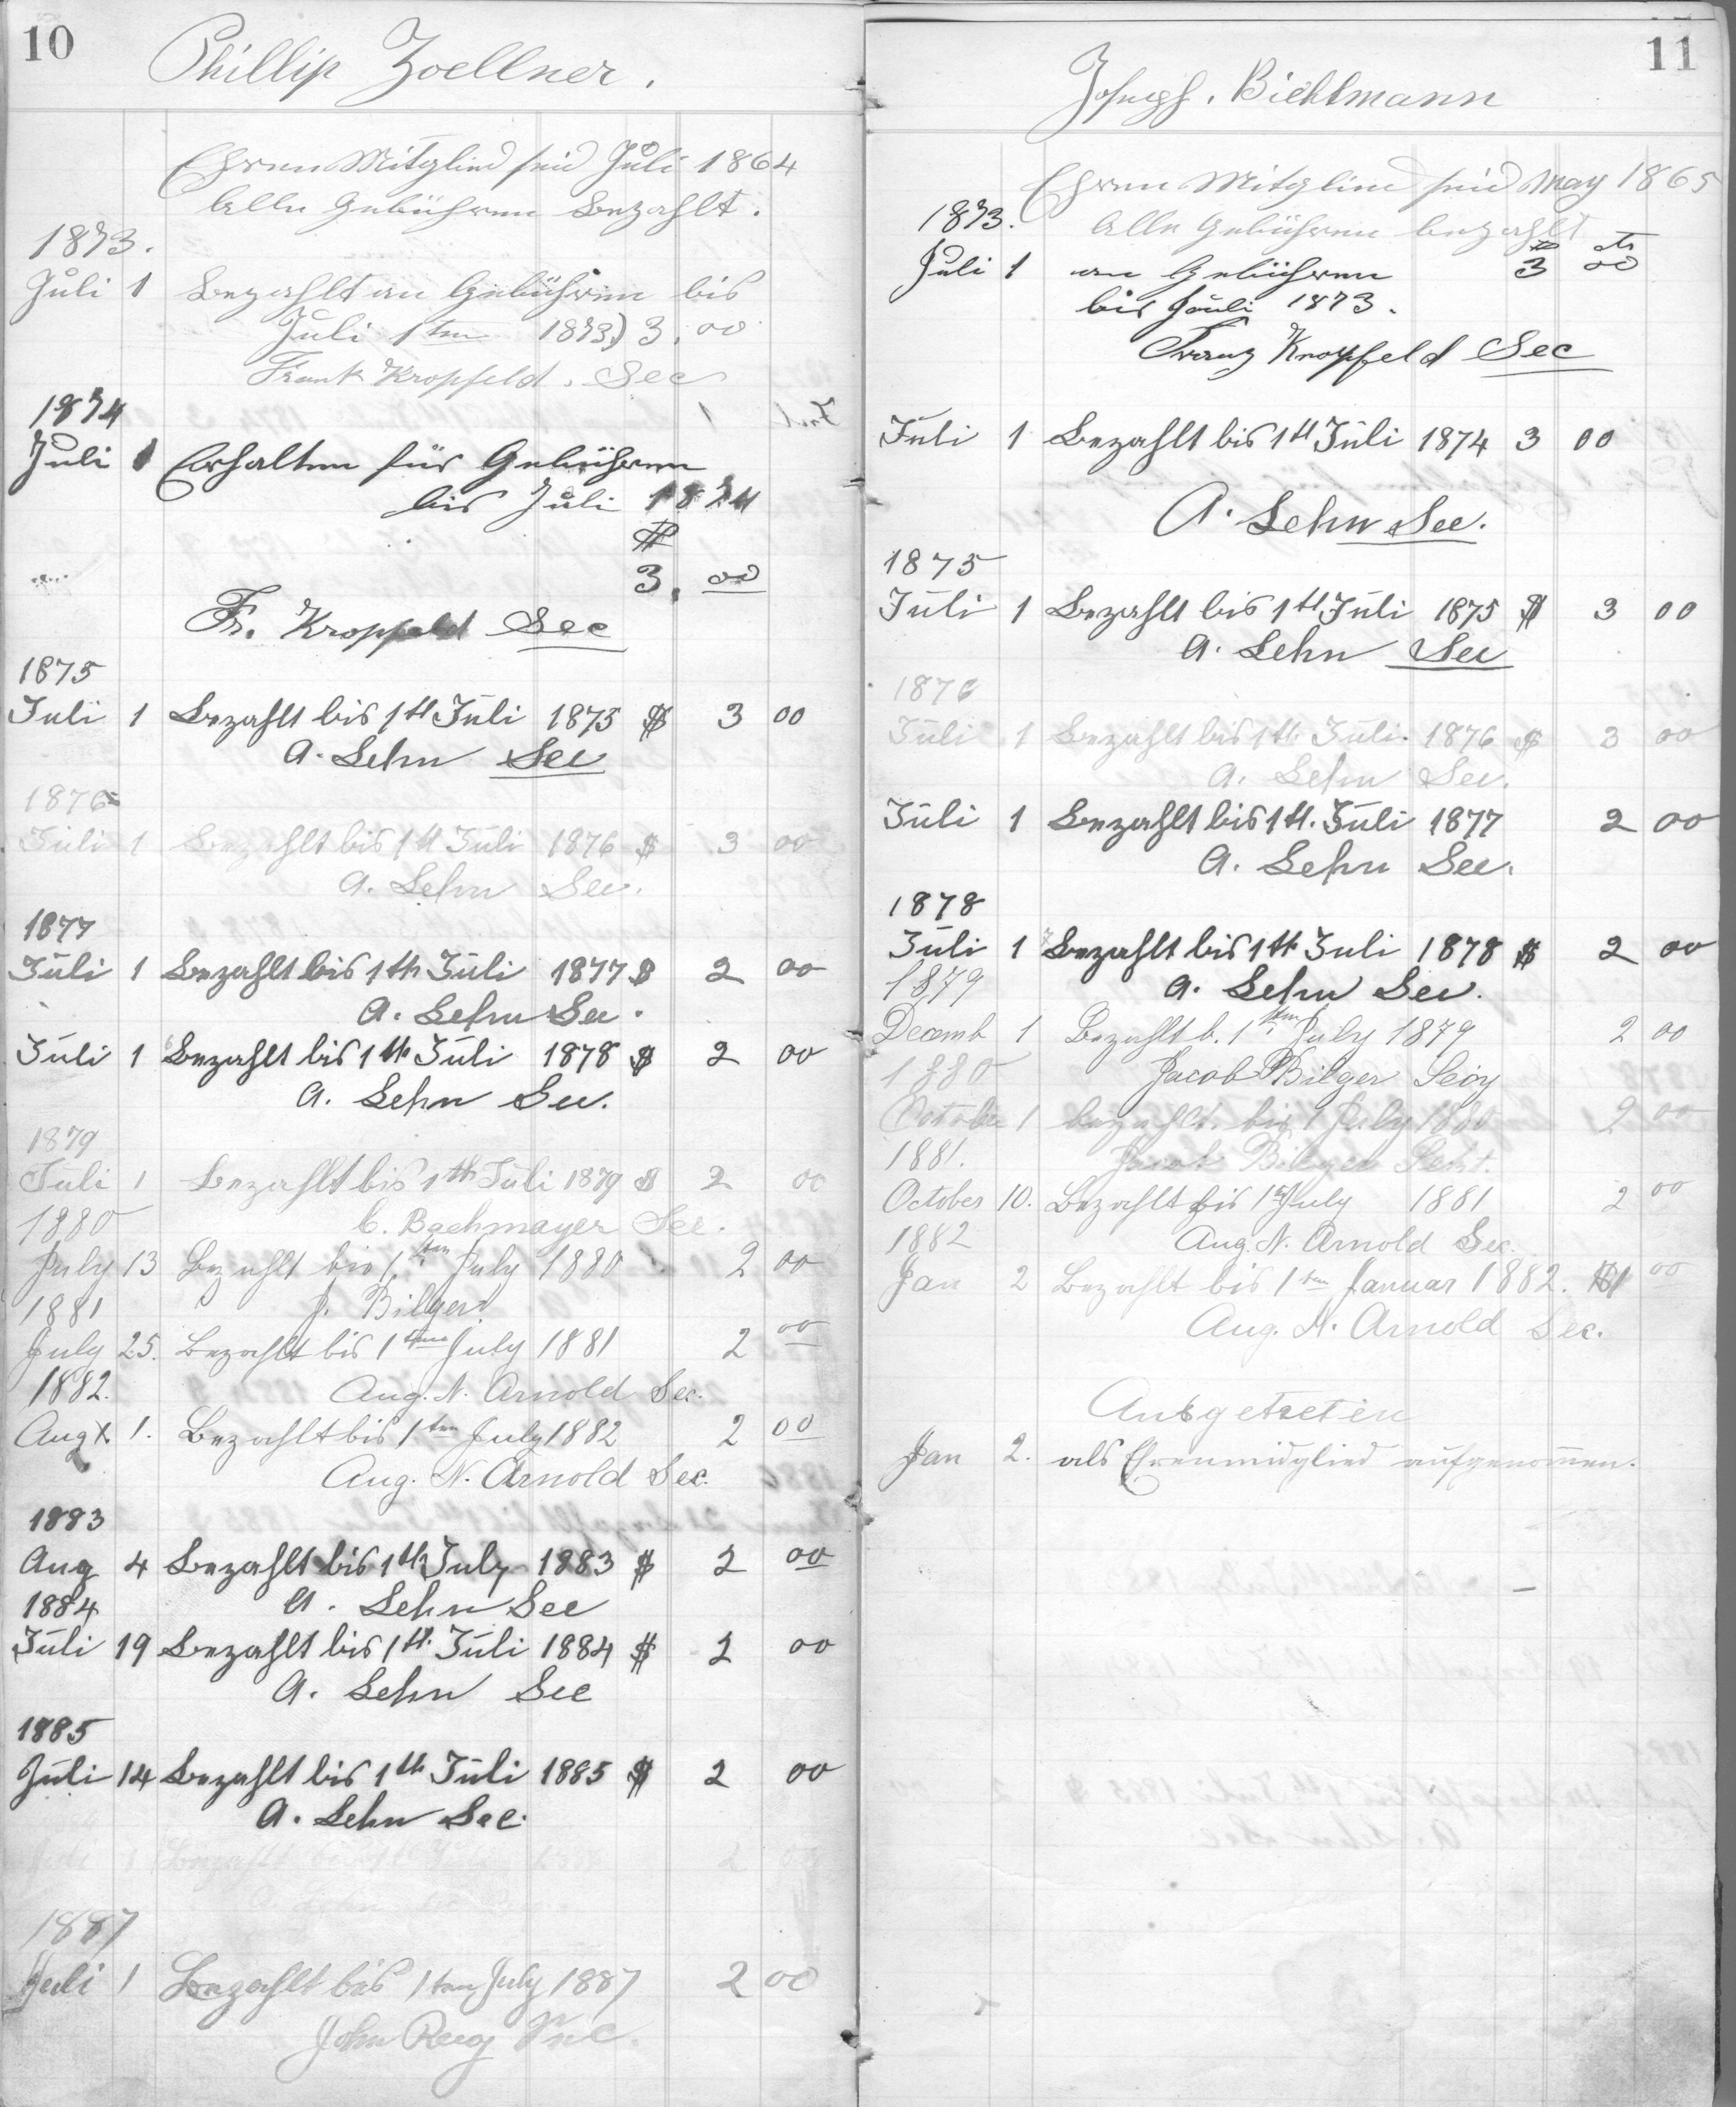 10
Phillip Zoellner.
Ehren Mitglied seid Juli 1864
Alle Gebühren bezahlt.
1873.
Juli 1 Bezahlt an Gebühren bis
Juli 1ten 1873) 3.00
Frank Kropfeld. Sec
1874
Juli 1 Erhalten für Gebühren
bis Juli 1874
$
3.00
Fr. Kropfeld Sec
1875
Juli 1 Bezahlt bis 1th Juli 1875 $ 3 00
A. Lehn Sec
1876
Juli 1 Bezahlt bis 1th Juli 1876 $ 3 00
A. Lehn Sec.
1877
Juli 1 Bezahlt bis 1th Juli 1877 $ 2 00
A. Lehn Sec.
Juli 1 Bezahlt bis 1th Juli 1878 $ 2 00
A. Lehn Sec.
1879
Juli 1 Bezahlt bis 1th Juli 1879 $ 2 00
C. Bachmayer Sec.
1880
July 13 Bezahlt bis 1ten July 1880 2 00
J. Bilger
1881
July 25. Bezahlt bis 1ten July 1881 2 00
Aug. N. Arnold Sec.
1882.
Augt. 1. Bezahlt bis 1ten July 1882 2 00
Aug. N. Arnold Sec.
1883
Aug 4 Bezahlt bis 1th July 1883 $ 2 00
A. Lehn Sec
1884
Juli 19 Bezahlt bis 1th Juli 1884 $ 2 00
A. Lehn Sec
1885
Juli 14 Bezahlt bis 1th Juli 1885 $ 2 00
A. Lehn Sec.
Juli 1 Bezahlt 2
1887
Juli 1 Bezahlt bis 1ten July 1887 2 00
John
11
Joseph. Biehlmann
Ehren Mitglied seid May 1865
1873. Alle Gebühren bezahlt
$ cts
Juli 1 an Gebühren 3 00
bis Juli 1873.
Franz Kropfeld Sec
Juli 1 Bezahlt bis 1th Juli 1874 3 00
A. Lehn Sec.
1875
Juli 1 Bezahlt bis 1th Juli 1875 $ 3 00
A. Lehn Sec
1876
Juli 1 Bezahlt bis 1th Juli 1876 $ 3 00
A. Lehn Sec.
Juli 1 Bezahlt bis 1th. Juli 1877 2 00
A. Lehn Sec.
1878
Juli 1 Bezahlt bis 1th Juli 1878 $ 2 00
A. Lehn Sec.
1879
Decemb 1 Bezahlt b. 1ten July 1879 2 00
Jacob Bilger Secy
1880
October 1 bezahlt bis 1 July 1880 2 00
Jacob Bilger
1881.
October 10. Bezahlt bis 1 July 1881 2 00
Aug. N. Arnold Sec.
1882
Jan 2 Bezahlt bis 1ten Januar 1882. $1 00
Aug. N. Arnold Sec.
Ausgetreten
Jan 2. als Ehrenmidglied aufgenom̅en.